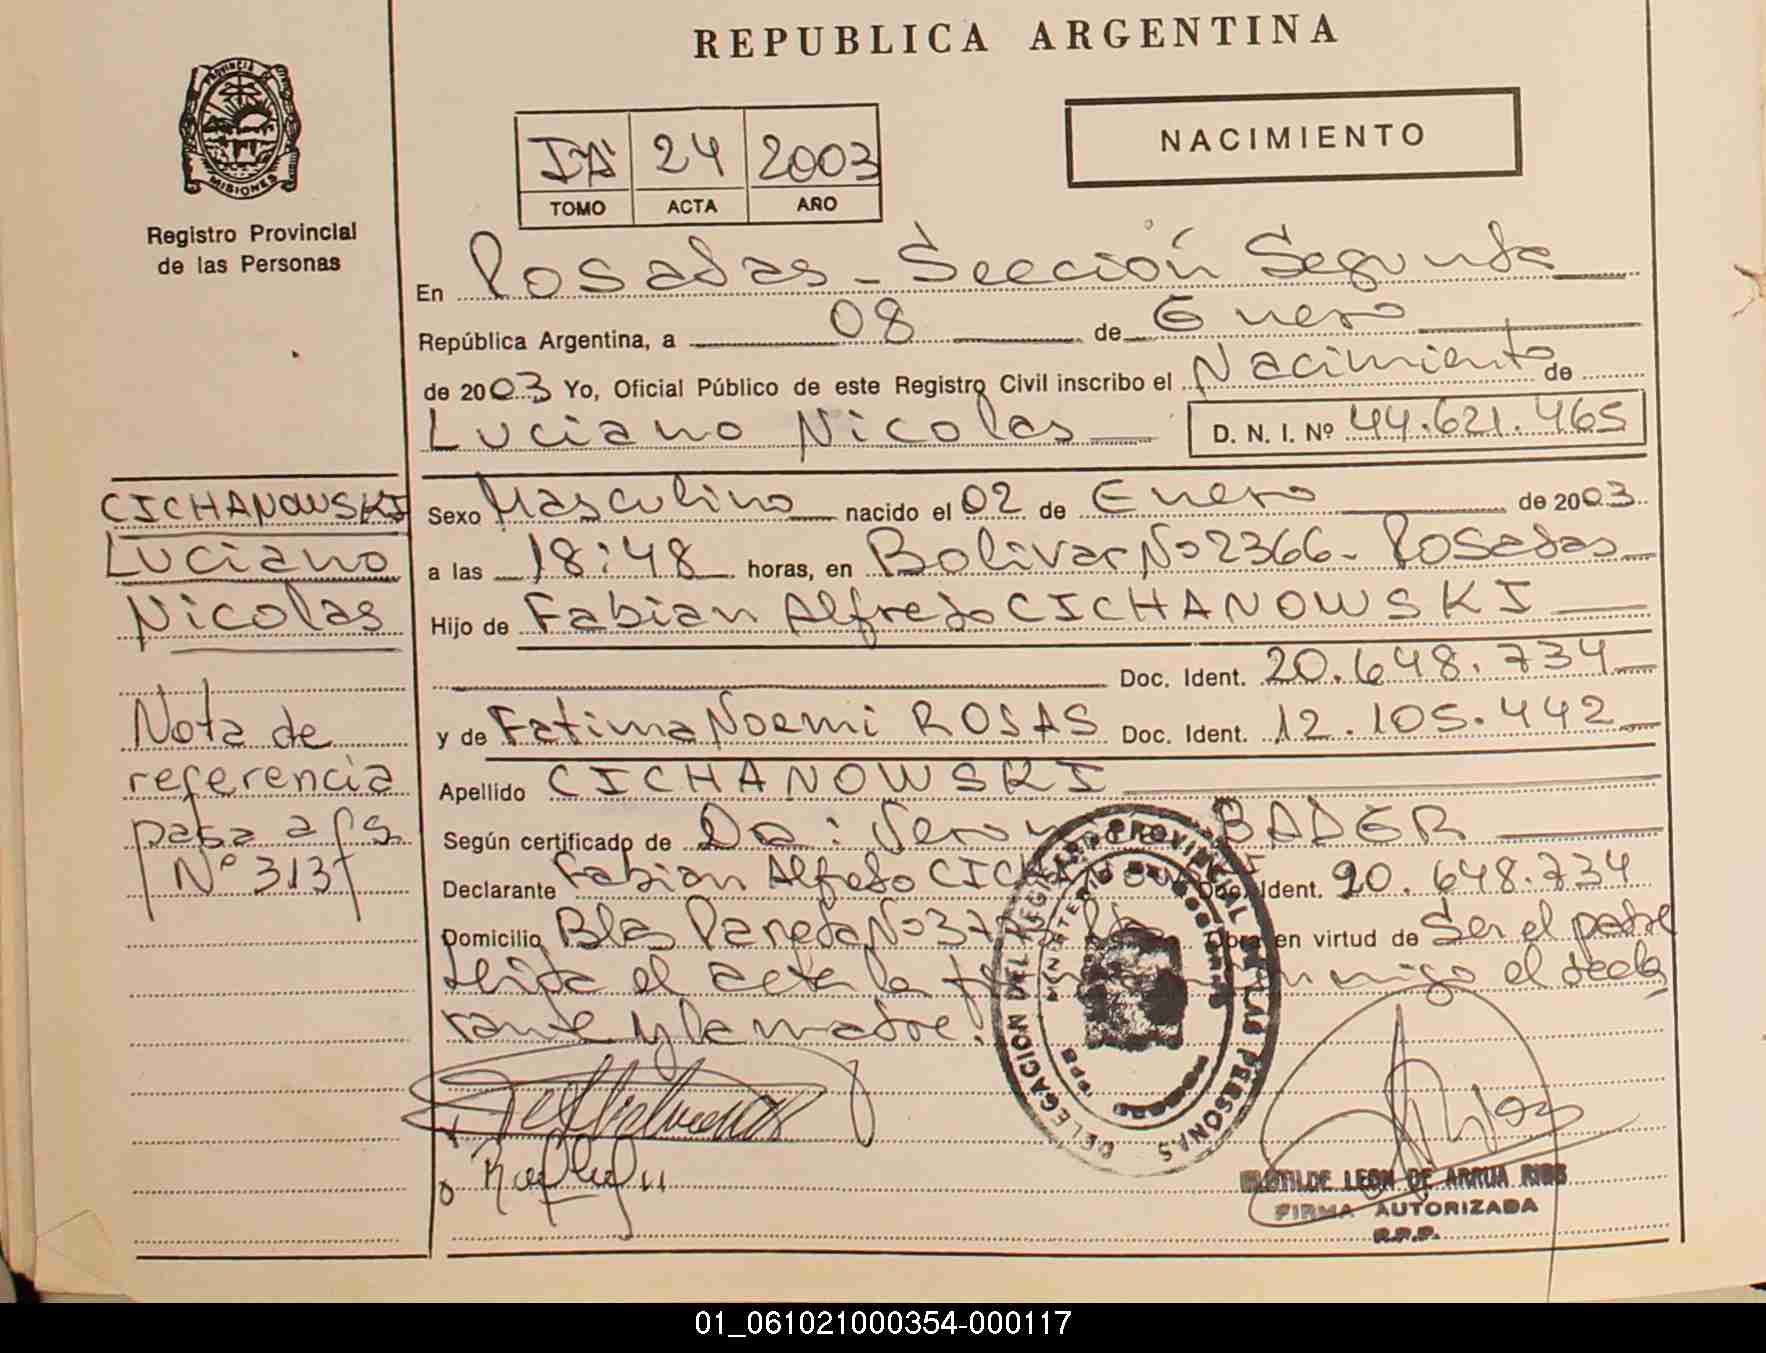 REPUBLICA ARGENTINA
PROVINCIA DE MISIONES
Registro Provincial
de las Personas
IA 24 2003
TOMO ACTA AÑO
NACIMIENTO
En Posadas - Sección Segunda
República Argentina, a 08 de Enero
de 2003 Yo, Oficial Público de este Registro Civil inscribo el Nacimiento de
Luciano Nicolas D. N. I. Nº 44.621.465
CICHANOWSKI
Luciano
Nicolas
Nota de
referencia
pasa a fs.
Nº 313
Sexo Masculino nacido el 02 de Enero de 2003
a las 18:48 horas, en Bolivar Nº 2366 - Posadas
Hijo de Fabian Alfredo CICHANOWSKI
Doc. Ident. 20.648.734
y de Fatima Noemi ROSAS Doc. Ident. 12.105.442
Apellido CICHANOWSKI
Según certificado de Dra: BADER
Declarante Fabian Alfredo Doc. Ident. 20.648.734
Domicilio Blas Pareta Nº Obra en virtud de Ser el padre
leida el acta la conmigo el decla
rante y la madre.
DELEGACION DEL REGISTRO PROVINCIAL DE LAS PERSONAS
MINISTERIO DE GOBIERNO
CLOTILDE LEON DE ARRUA RIOS
FIRMA AUTORIZADA
R.P.P.
01_061021000354-000117